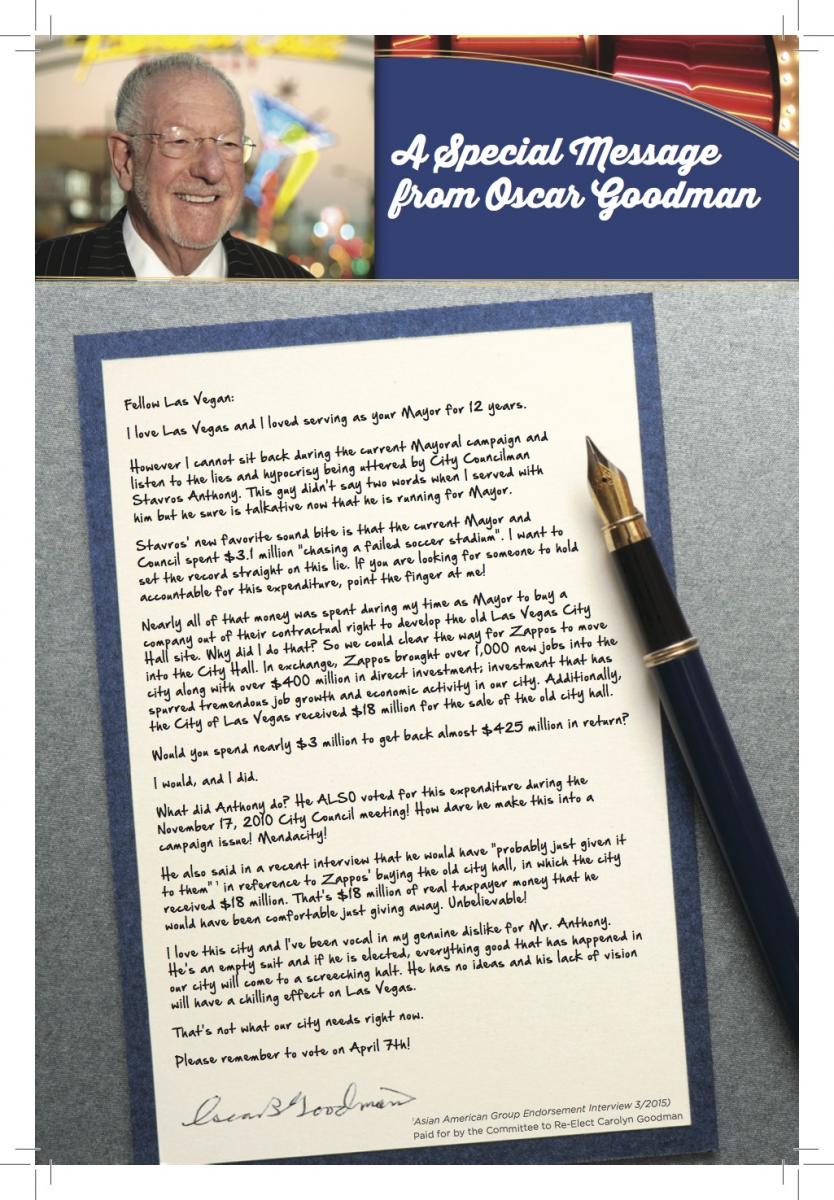 A Special Message
from Oscar Goodman
Fellow Las Vegan:
I love Las Vegas and I loved serving as your Mayor for 12 years.
However I cannot sit back during the current Mayoral campaign and
listen to the lies and hypocrisy being uttered by City Councilman
Stavros Anthony. This guy didn't say two words when I served with
him but he sure is talkative now that he is running for Mayor.
Stavros' new favorite sound bite is that the current Mayor and
Council spent $3.1 million "chasing a failed soccer stadium". I want to
set the record straight on this lie. If you are looking for someone to hold
accountable for this expenditure, point the finger at me!
Nearly all of that money was spent during my time as Mayor to buy a
company out of their contractual right to develop the old Las Vegas City
Hall site. Why did I do that? So we could clear the way for Zappos to move
into the City Hall. In exchange, Zappos brought over 1,000 new jobs into the
city along with over $400 million in direct investment; investment that has
spurred tremendous job growth and economic activity in our city. Additionally,
the City of Las Vegas received $18 million for the sale of the old city hall.
Would you spend nearly $3 million to get back almost $425 million in return?
I would, and I did.
What did Anthony do? He ALSO voted for this expenditure during the
November 17, 2010 City Council meeting! How dare he make this into a
campaign issue! Mendacity!
He also said in a recent interview that he would have "probably just given it
to them" ¹ in reference to Zappos' buying the old city hall, in which the city
received $18 million. That's $18 million of real taxpayer money that he
would have been comfortable just giving away. Unbelievable!
I love this city and I've been vocal in my genuine dislike for Mr. Anthony.
He's an empty suit and if he is elected, everything good that has happened in
our city will come to a screeching halt. He has no ideas and his lack of vision
will have a chilling effect on Las Vegas.
That's not what our city needs right now.
Please remember to vote on April 7th!
Oscar B Goodman
¹Asian American Group Endorsement Interview 3/2015)
Paid for by the Committee to Re-Elect Carolyn Goodman